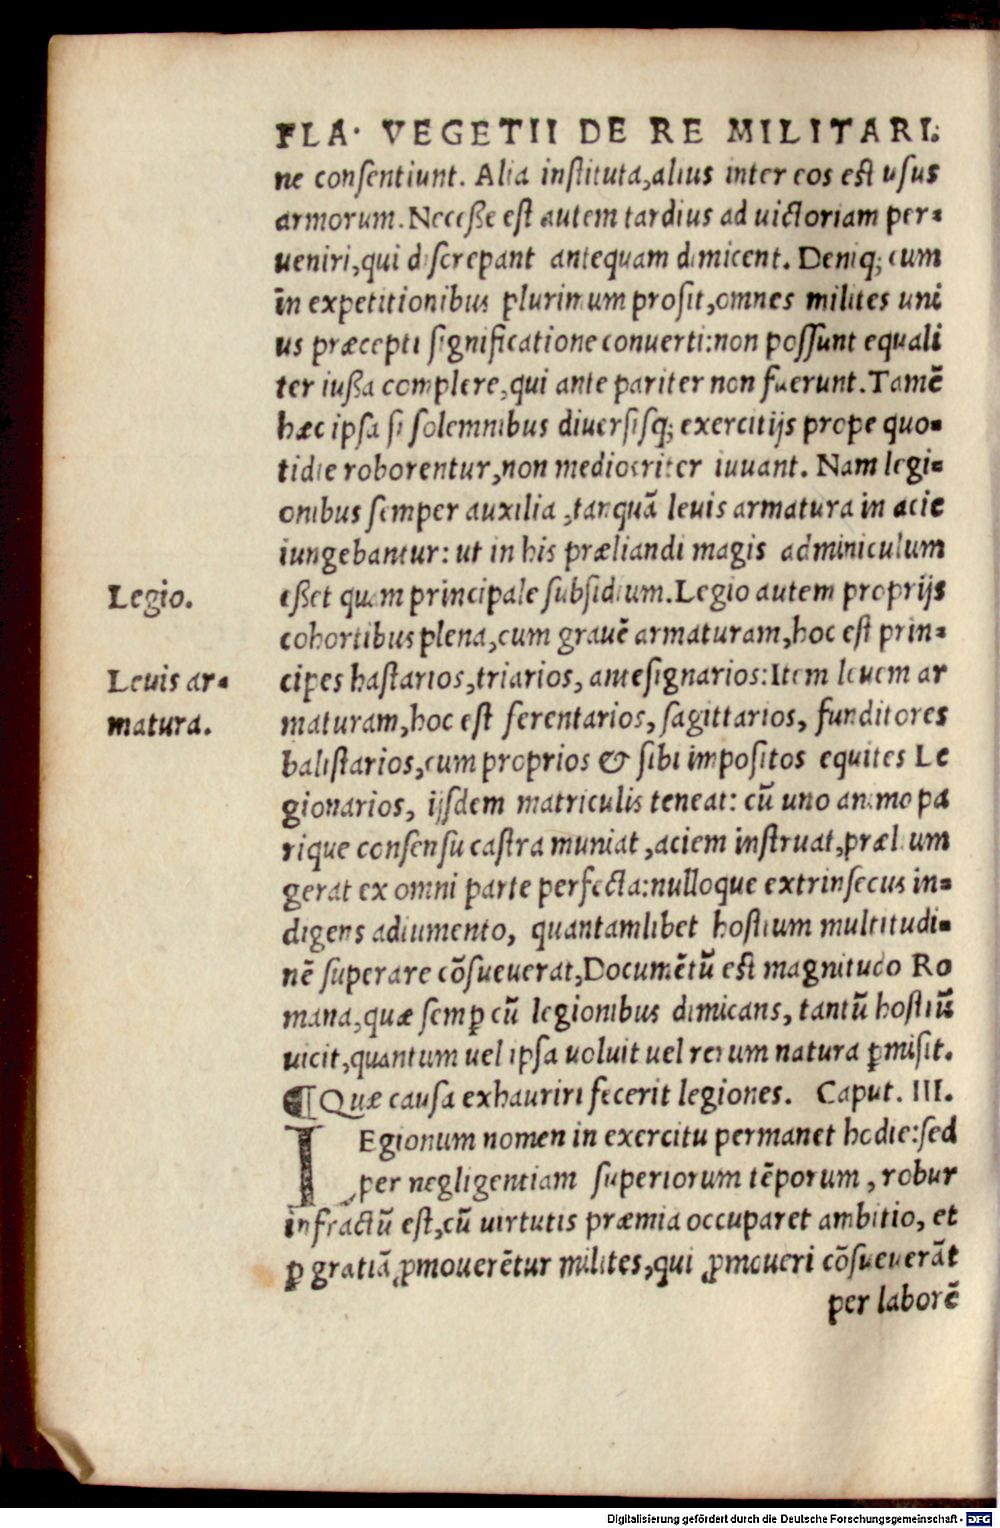 FLA. VEGETII DE RE MILITARI.
ne consentiunt. Alia instituta, alius inter eos est usus
armorum. Neceße est autem tardius ad uictoriam per-
ueniri, qui discrepant antequam dimicent. Deniq; cum
in expetitionibus plurimum prosit, omnes milites uni
us præcepti significatione conuerti: non possunt equali
ter iußa complere, qui ante pariter non fuerunt. Tamē
hæc ipsa si solemnibus diuersisq; exercitijs prope quo-
tidie roborentur, non mediocriter iuuant. Nam legi-
onibus semper auxilia, tanquā leuis armatura in acie
iungebantur: ut in his præliandi magis adminiculum
Legio.
eßet quam principale subsidium. Legio autem proprijs
cohortibus plena, cum grauē armaturam, hoc est prin-
Leuis ar-
cipes hastarios, triarios, antesignarios: Item leuem ar
matura.
maturam, hoc est ferentarios, sagittarios, funditores
balistarios, cum proprios & sibi impositos equites Le
gionarios, ijsdem matriculis teneat: cū uno animo pa
rique consensu castra muniat, aciem instruat, prælium
gerat ex omni parte perfecta: nulloque extrinsecus in-
digens adiumento, quantamlibet hostium multitudi-
nē superare cōsueuerat, Documētū est magnitudo Ro
mana, quæ semꝑ cū legionibus dimicans, tantū hostiū
uicit, quantum uel ipsa uoluit uel rerum natura ꝑmisit.
¶ Quæ causa exhauriri fecerit legiones. Caput. III.
LEgionum nomen in exercitu permanet hodie: sed
per negligentiam superiorum tēporum, robur
infractū est, cū uirtutis præmia occuparet ambitio, et
ꝑ gratiā ꝓmouerētur milites, qui ꝓmoueri cōsueuerāt
per laborē
Digitalisierung gefördert durch die Deutsche Forschungsgemeinschaft - DFG